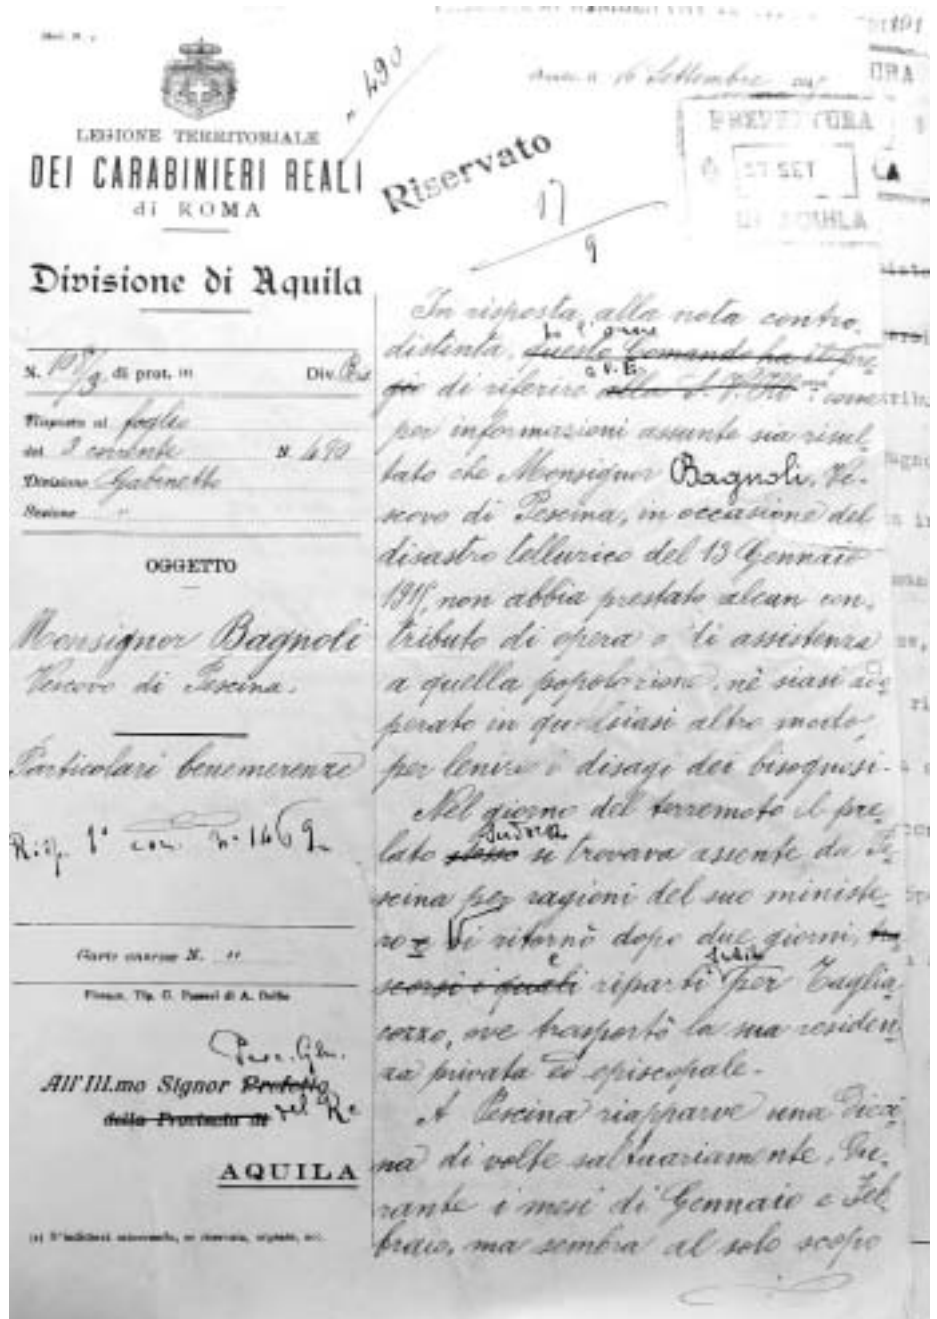 n 490
16 Settembre
LEGIONE TERRITORIALE
DEI CARABINIERI REALI
di ROMA
Riservato
PREFETTURA
17 SET
DI AQUILA
17
9
Divisione di Aquila
N. di prot. Div.
Risposta al foglio
del 3 corrente N. 490
Divisione Gabinetto
Sezione "
OGGETTO
Monsignor Bagnoli
Vescovo di Pescina.
Particolari benemerenze
Risp. n. 1469
Carte annesse N. "
All'Ill.mo Signor Prefetto
della Provincia di del Re
AQUILA
In risposta alla nota contro
distinta, questo Comando ha il pre
gio di riferire alla S.V. Ill.ma come
per informazioni assunte sia risul
tato che Monsignor Bagnoli, Ve-
scovo di Pescina, in occasione del
disastro tellurico del 13 Gennaio
1915, non abbia prestato alcun con
tributo di opera o di assistenza
a quella popolazione, nè siasi ado
perato in qualsiasi altro modo,
per lenire i disagi dei bisognosi.
Nel giorno del terremoto il pre
lato stesso si trovava assente da Pe
scina per ragioni del suo ministe
ro e vi ritornò dopo due giorni, tra
scorsi i quali ripartì subito per Taglia
cozzo, ove trasportò la sua residen
za privata ed episcopale.
A Pescina riapparve una dieci
na di volte saltuariamente, du
rante i mesi di Gennaio e Feb
braio, ma sembra al solo scopo